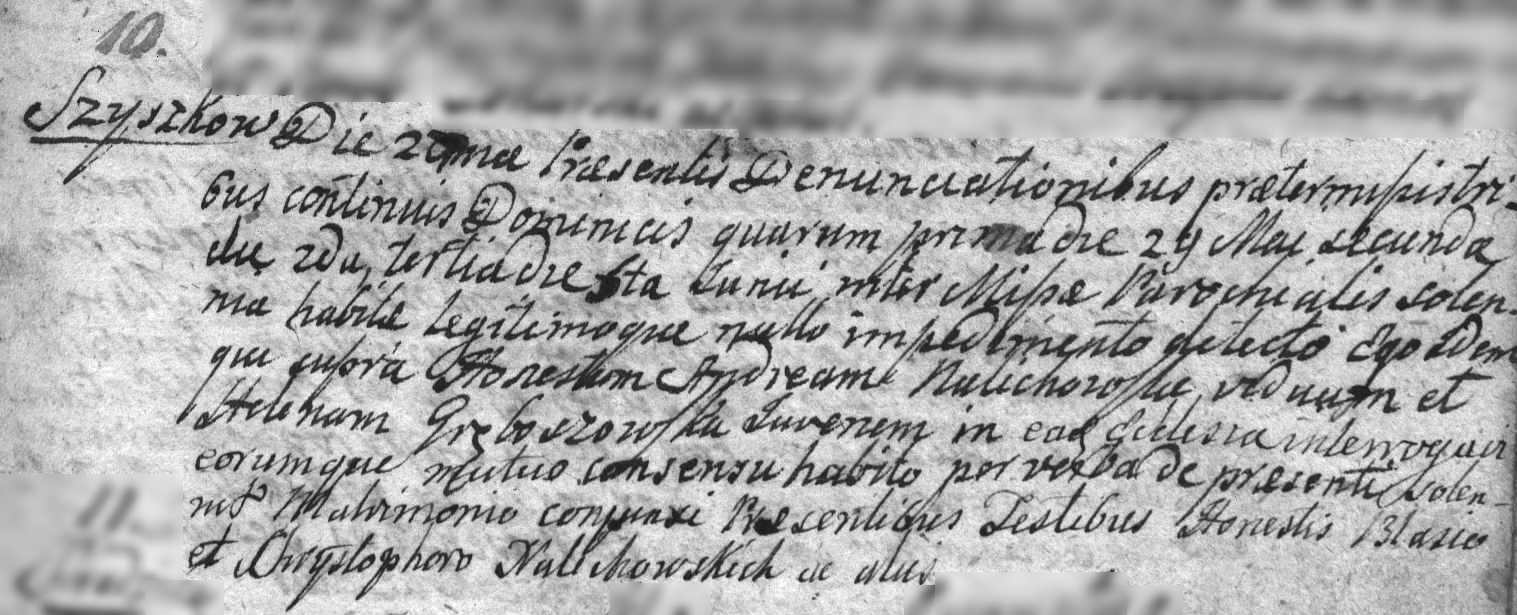 10.
Szyszkow Die 20mæ Præsentis Denunciationibus prætermissis tri-
bus continuis Dominicis quarum prima die 29 Mai secunda
die 2da, tertia die 6ta Junii inter Missæ Parochialis solen-
nia habitæ legitimoque nullo impedimento detecto Ego Idem
qui supra Honestum Andream viduum et
Helenam Juvenem in ead Ecclesia interrogavi
eorumque mutuo consensu habito per verba de præsenti solen-
nit Matrimonio conjunxi Præsentibus Testibus Honestis Blasio
et Chrystophoro Nalichowskich ac aliis
11.